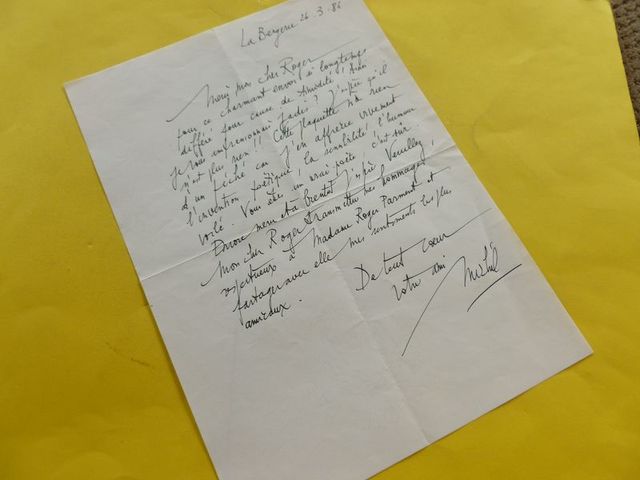 La Bergerie 26.3.86
Merci mon cher Roger
pour ce charmant envoi si longtemps
différé pour cause de timidité! Ainsi
je vous impressionnais jadis? J'espère qu'il
n'est plus rien!! Cette plaquette n'a rien
d'un péché car j'en apprécie vivement
l'invention poétique, la sensibilité, l'humour
voilé. Vous êtes un vrai poète c'est sûr
Encore merci et à bientôt j'espère. Veuillez,
Mon cher Roger transmettre mes hommages
respectueux à Madame Roger Parment et
partager avec elle mes sentiments les plus
amicaux.
De tout coeur
votre ami